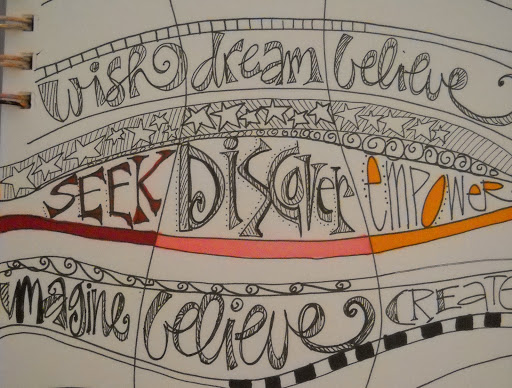 wish dream believe
SEEK DIScover EmPOWER
imagine believe CREATE